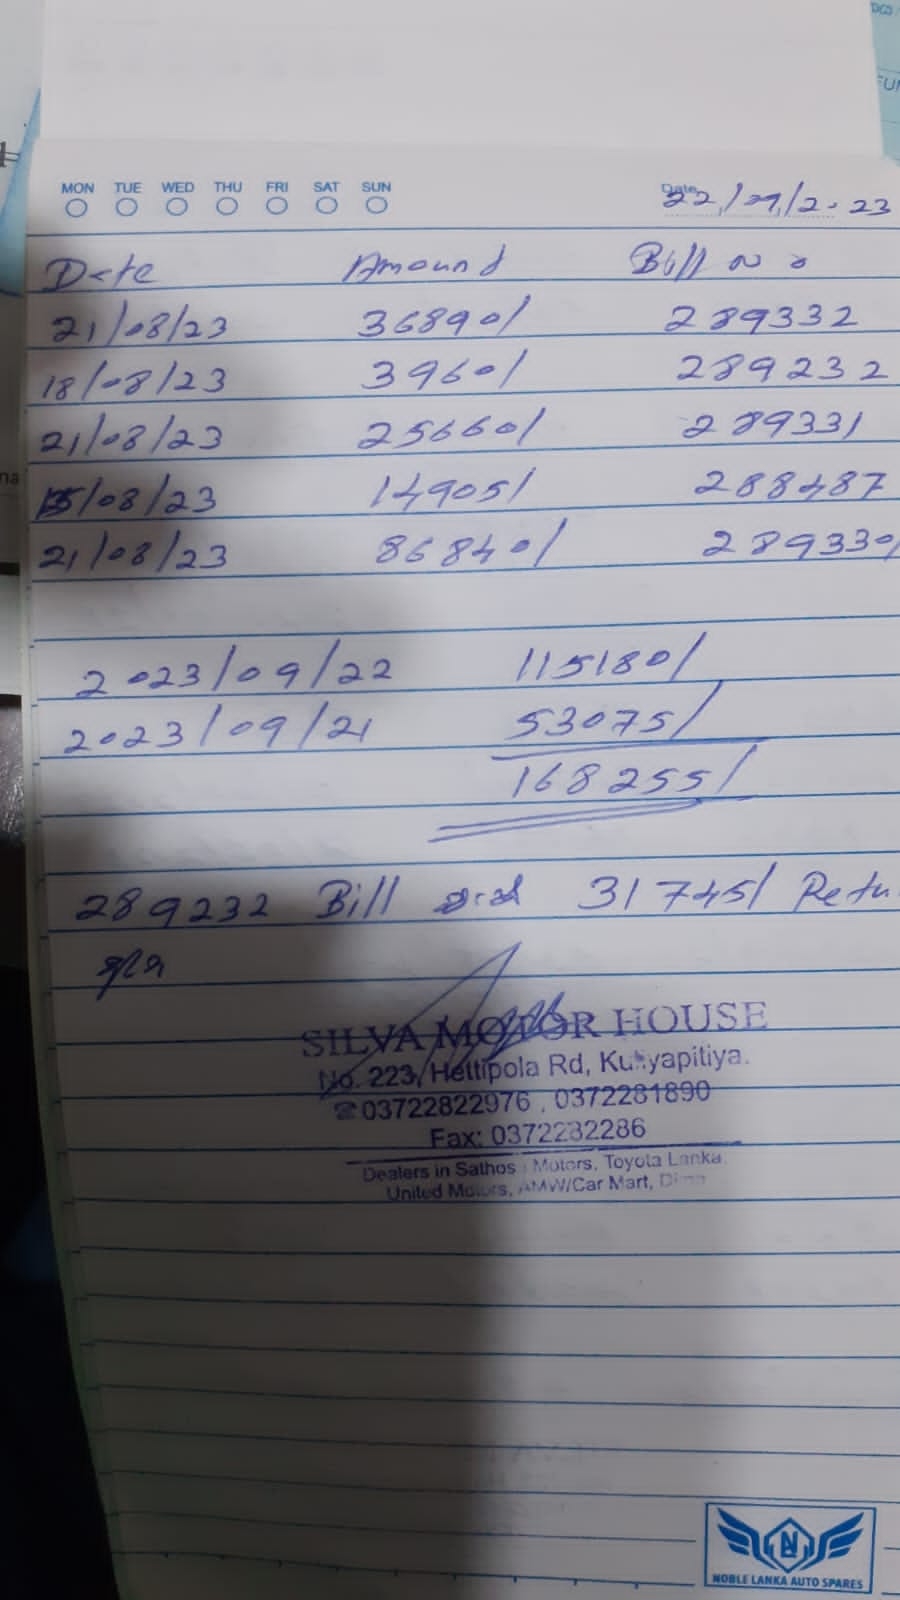 MON TUE WED THU FRI SAT SUN
Date 22/09/2023
Date Amound Bill No
21/08/23 36890/ 289332
18/08/23 3960/ 289232
21/08/23 25660/ 289331
15/08/23 14905/ 288487
21/08/23 86840/ 289330/
2023/09/22 115180/
2023/09/21 53075/
168255/
289232 Bill 31745/ Retu
SILVA MOTOR HOUSE
No. 223, Hettipola Rd, Kuliyapitiya.
☎03722822976 , 0372281890
Fax: 0372232286
Dealers in Sathosa Motors, Toyota Lanka,
United Motors, AMW/Car Mart,
NOBLE LANKA AUTO SPARES